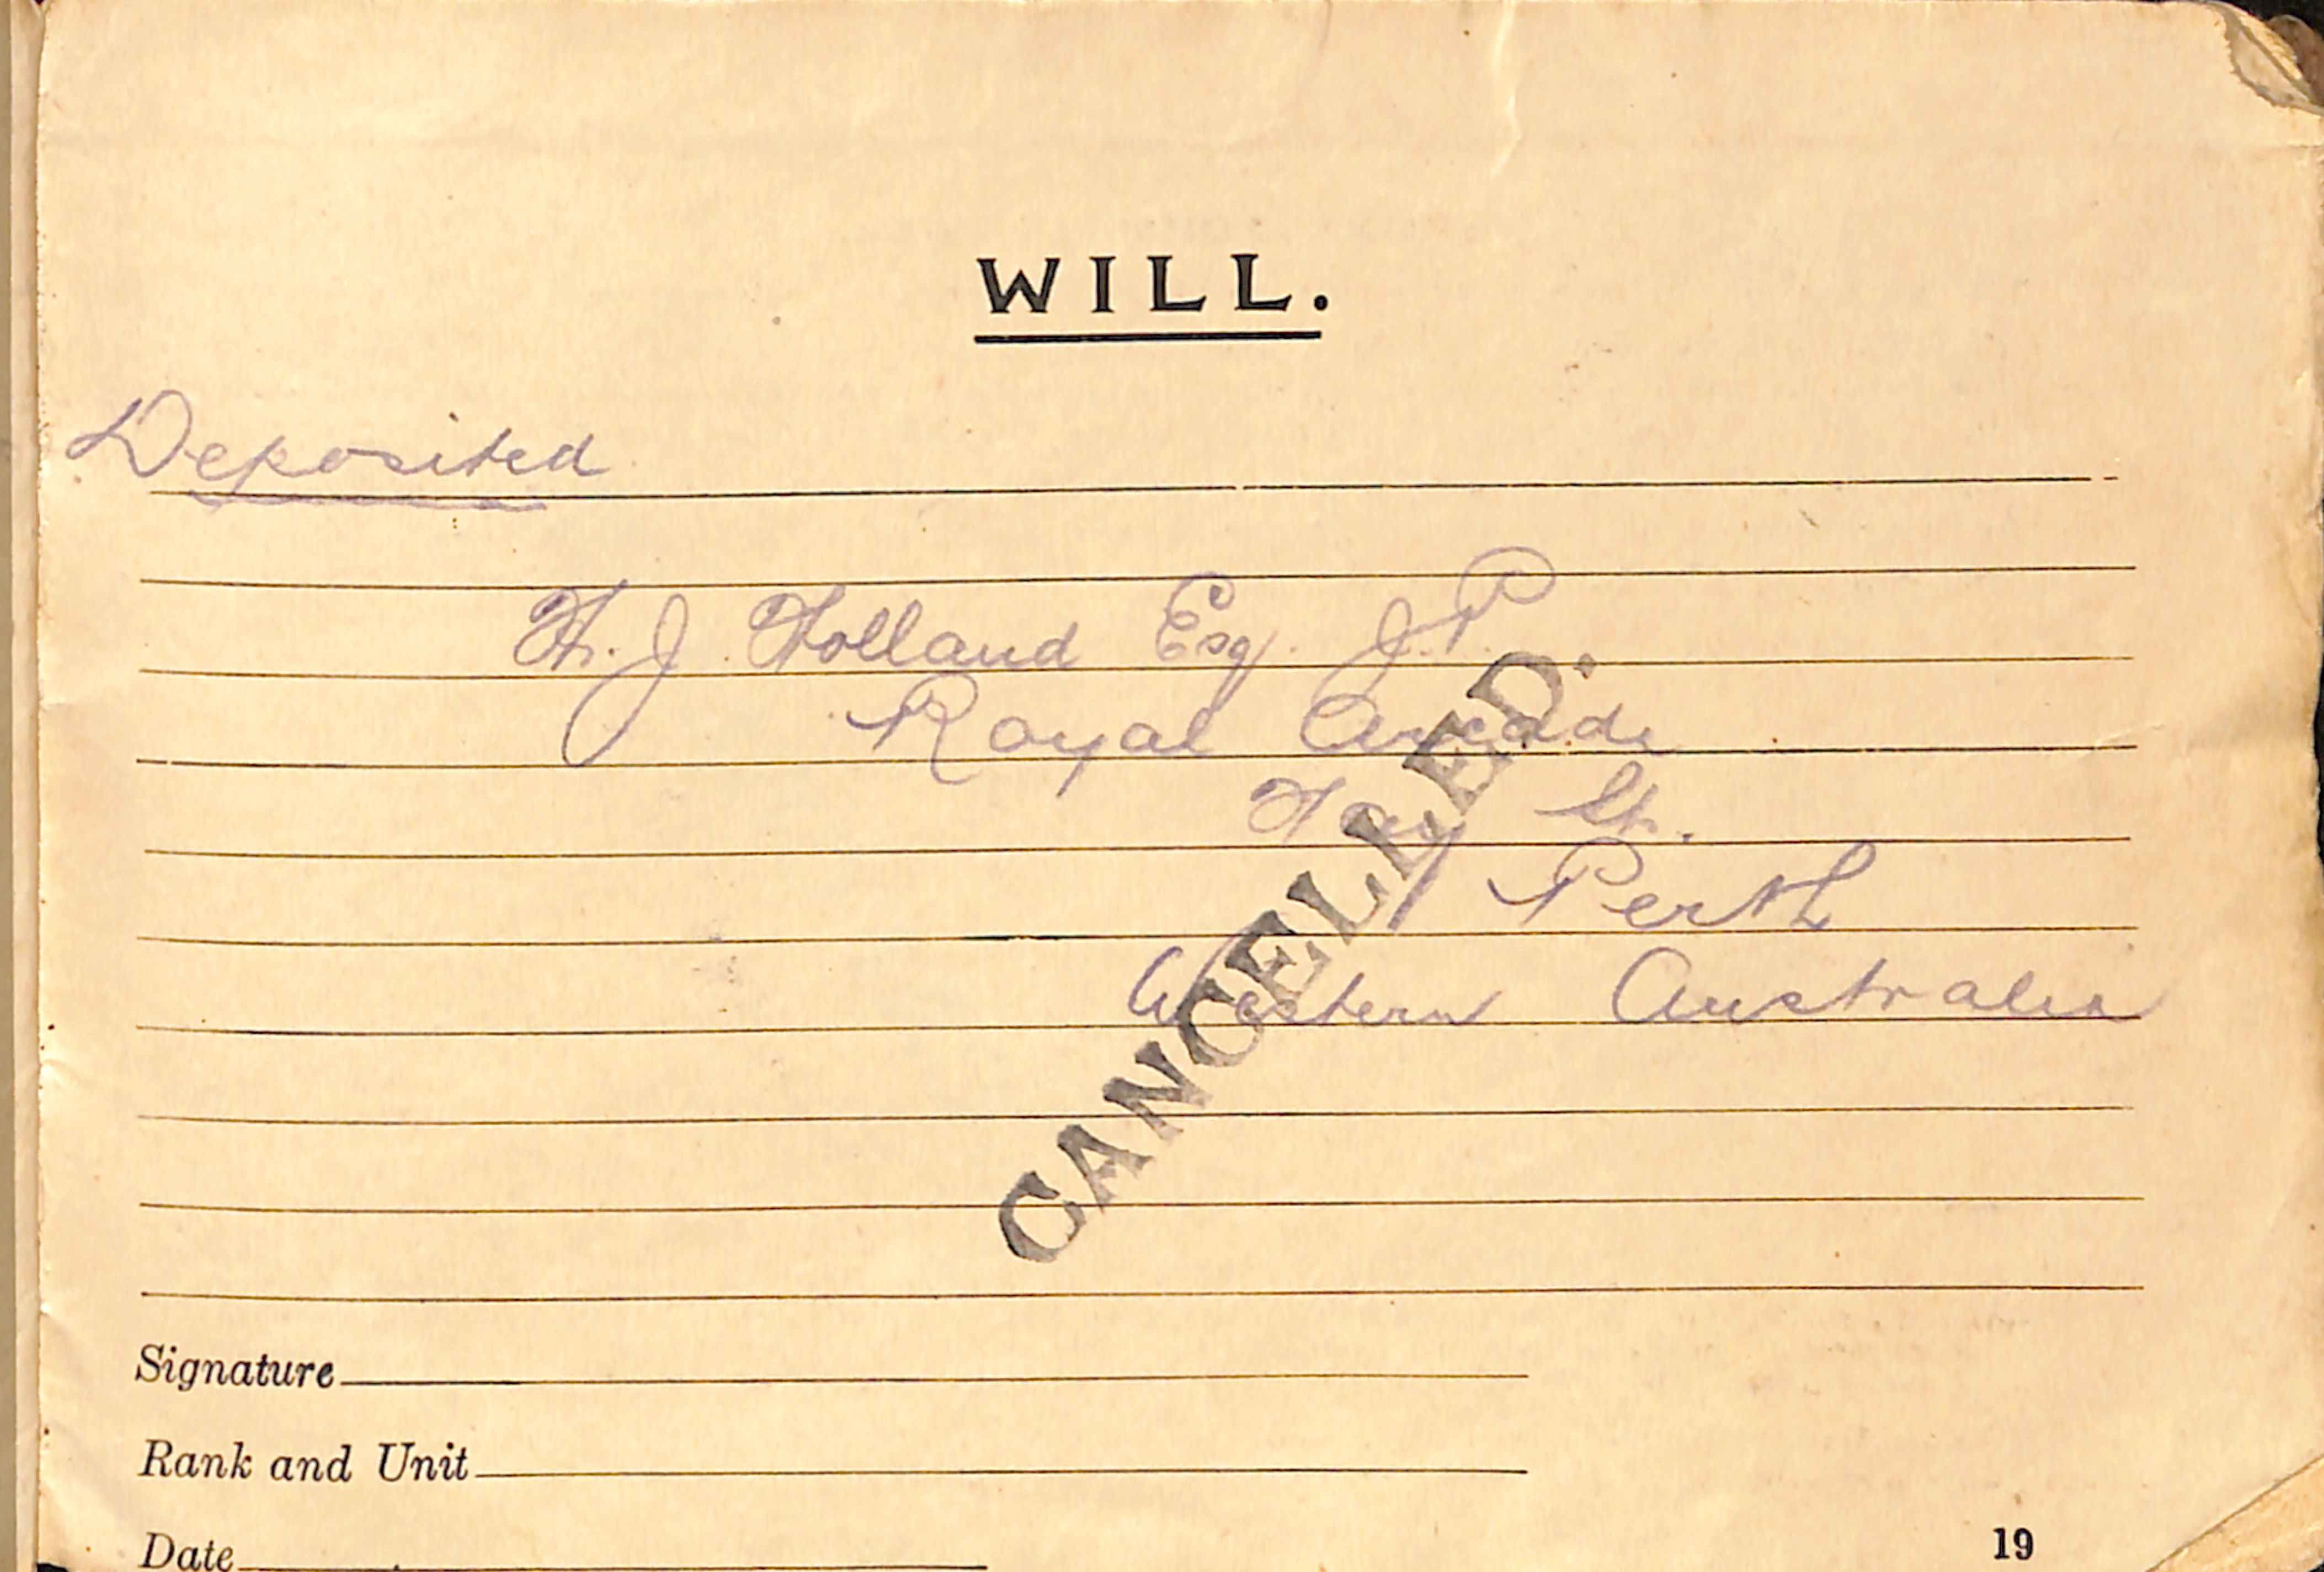 WILL.
Deposited
H. J. Holland Esq. J.P.
Royal Arcade
Hay St.
Perth
Western Australia
CANCELLED.
Signature
Rank and Unit
Date
19